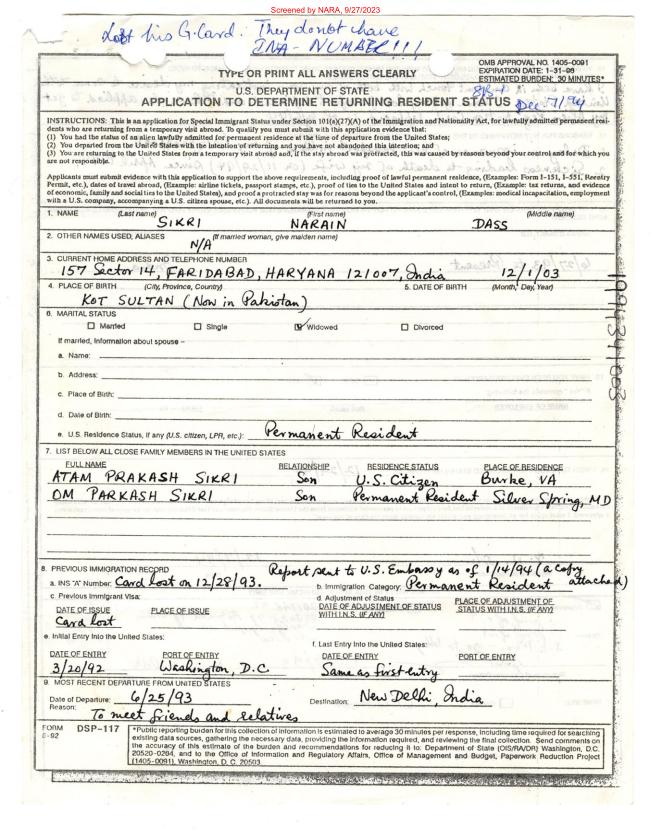 Screened by NARA, 9/27/2023
Lost his G.Card. They donot have
INA - NUMBER!!!
OMB APPROVAL NO. 1405-0091
EXPIRATION DATE: 1-31-96
ESTIMATED BURDEN: 30 MINUTES*
TYPE OR PRINT ALL ANSWERS CLEARLY
U.S. DEPARTMENT OF STATE
APPLICATION TO DETERMINE RETURNING RESIDENT STATUS
SB-1
Dec 7/94
INSTRUCTIONS: This is an application for Special Immigrant Status under Section 101(a)(27)(A) of the Immigration and Nationality Act, for lawfully admitted permanent residents who are returning from a temporary visit abroad. To qualify you must submit with this application evidence that:
(1) You had the status of an alien lawfully admitted for permanent residence at the time of departure from the United States;
(2) You departed from the United States with the intention of returning and you have not abandoned this intention; and
(3) You are returning to the United States from a temporary visit abroad and, if the stay abroad was protracted, this was caused by reasons beyond your control and for which you are not responsible.
Applicants must submit evidence with this application to support the above requirements, including proof of lawful permanent residence, (Example: Form I-151, I-551, Reentry Permit, etc.), dates of travel abroad, (Example: airline tickets, passport stamps, etc.), proof of ties to the United States and intent to return, (Example: tax returns, and evidence of economic, family and social ties to the United States), and proof a protracted stay was for reasons beyond the applicant's control, (Examples: medical incapacitation, employment with a U.S. company, accompanying a U.S. citizen spouse, etc.). All documents will be returned to you.
1. NAME (Last name) (First name) (Middle name)
SIKRI NARAIN DASS
2. OTHER NAMES USED, ALIASES (If married woman, give maiden name)
N/A
3. CURRENT HOME ADDRESS AND TELEPHONE NUMBER
157 Sector 14, FARIDABAD, HARYANA 121007, India 12/1/03
4. PLACE OF BIRTH (City, Province, Country) 5. DATE OF BIRTH (Month, Day, Year)
KOT SULTAN (Now in Pakistan)
6. MARITAL STATUS
Married Single Widowed Divorced
If married, information about spouse –
a. Name:
b. Address:
c. Place of Birth:
d. Date of Birth:
e. U.S. Residence Status, if any (U.S. citizen, LPR, etc.): Permanent Resident
7. LIST BELOW ALL CLOSE FAMILY MEMBERS IN THE UNITED STATES
FULL NAME RELATIONSHIP RESIDENCE STATUS PLACE OF RESIDENCE
ATAM PRAKASH SIKRI Son U.S. Citizen Burke, VA
OM PARKASH SIKRI Son Permanent Resident Silver Spring, MD
8. PREVIOUS IMMIGRATION RECORD Report sent to U.S. Embassy as of 1/14/94 (a copy attached)
a. INS "A" Number: Card lost on 12/28/93. b. Immigration Category: Permanent Resident
c. Previous Immigrant Visa: d. Adjustment of Status
DATE OF ISSUE PLACE OF ISSUE DATE OF ADJUSTMENT OF STATUS WITH I.N.S. (IF ANY) PLACE OF ADJUSTMENT OF STATUS WITH I.N.S. (IF ANY)
Card lost
e. Initial Entry Into the United States: f. Last Entry Into the United States:
DATE OF ENTRY PORT OF ENTRY DATE OF ENTRY PORT OF ENTRY
3/20/92 Washington, D.C. Same as first entry
9. MOST RECENT DEPARTURE FROM UNITED STATES
Date of Departure: 6/25/93 Destination: New Delhi, India
Reason: To meet friends and relatives
FORM DSP-117
*Public reporting burden for this collection of information is estimated to average 30 minutes per response, including time required for searching existing data sources, gathering the necessary data, providing the information required, and reviewing the final collection. Send comments on the accuracy of this estimate of the burden and recommendations for reducing it to: Department of State (OIS/RA/DR) Washington, D.C. 20520-0264, and to the Office of Information and Regulatory Affairs, Office of Management and Budget, Paperwork Reduction Project (1405-0091), Washington, D. C. 20503.